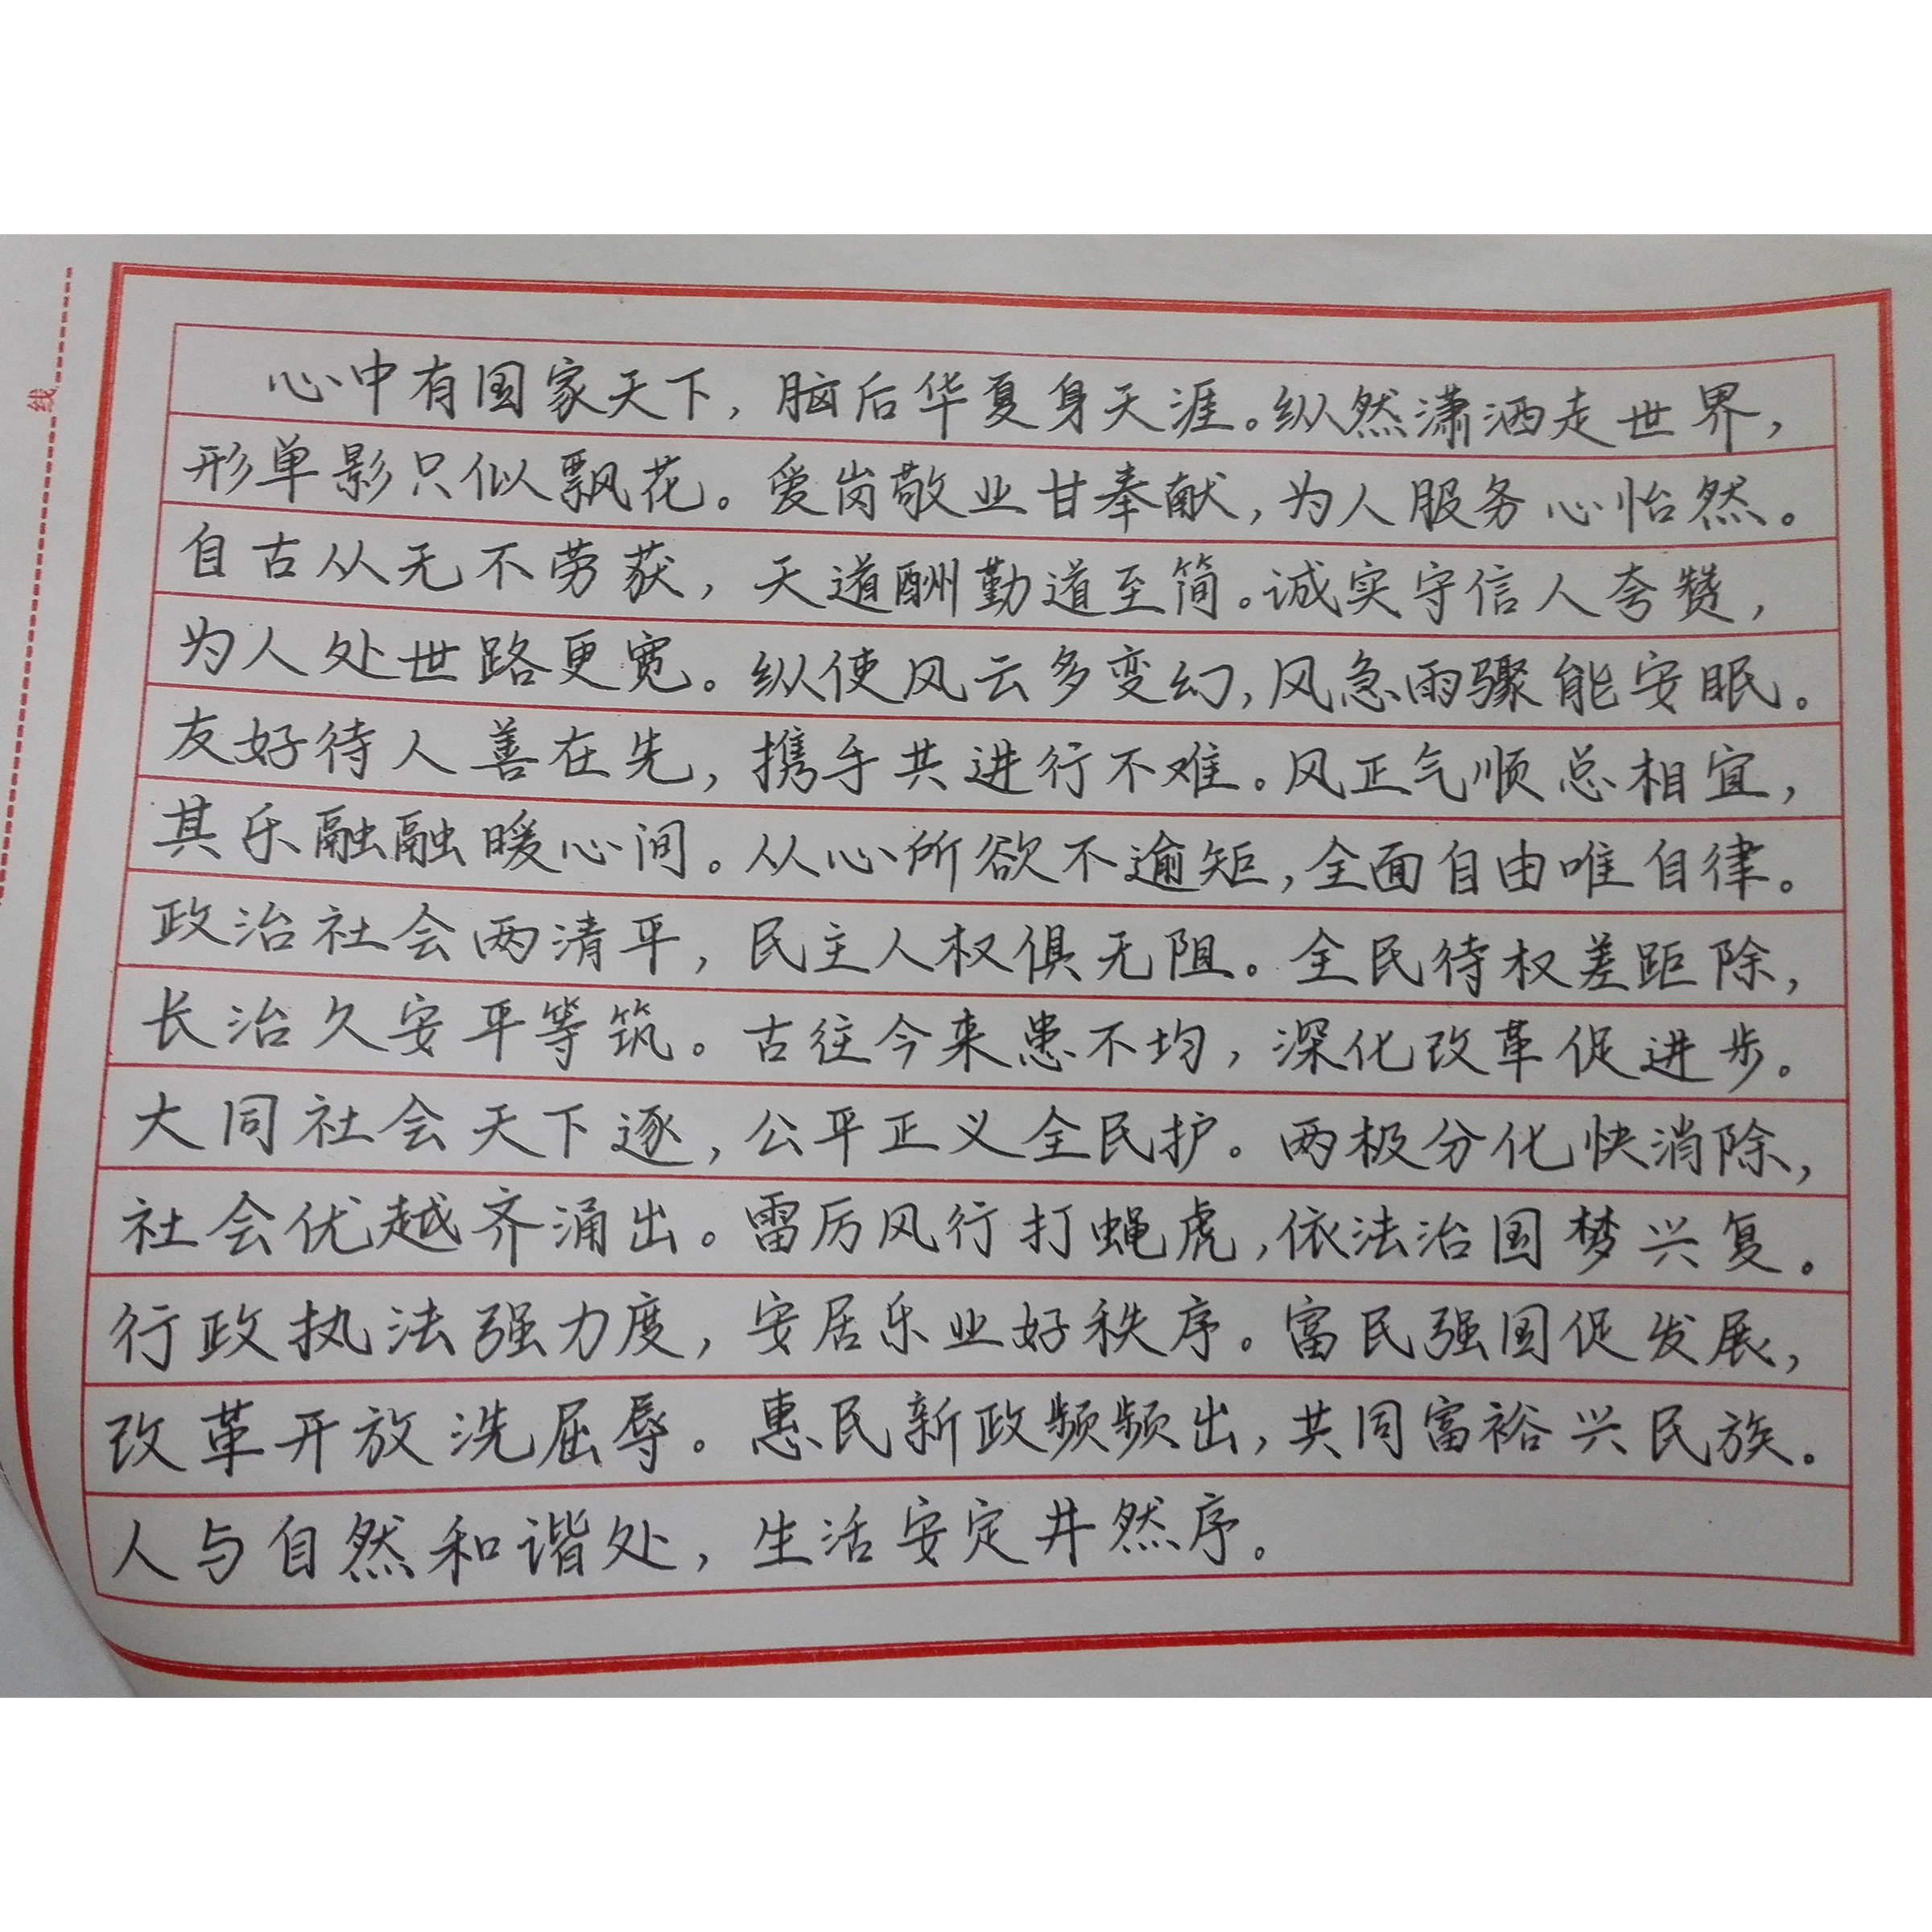 线
心中有国家天下，脑后华夏身天涯。纵然潇洒走世界，
形单影只似飘花。爱岗敬业甘奉献，为人服务心怡然。
自古从无不劳获，天道酬勤道至简。诚实守信人夸赞，
为人处世路更宽。纵使风云多变幻，风急雨骤能安眠。
友好待人善在先，携手共进行不难。风正气顺总相宜，
其乐融融暖心间。从心所欲不逾矩，全面自由唯自律。
政治社会两清平，民主人权俱无阻。全民待权差距除，
长治久安平等筑。古往今来患不均，深化改革促进步。
大同社会天下逐，公平正义全民护。两极分化快消除，
社会优越齐涌出。雷厉风行打蝇虎，依法治国梦兴复。
行政执法强力度，安居乐业好秩序。富民强国促发展，
改革开放洗屈辱。惠民新政频频出，共同富裕兴民族。
人与自然和谐处，生活安定井然序。